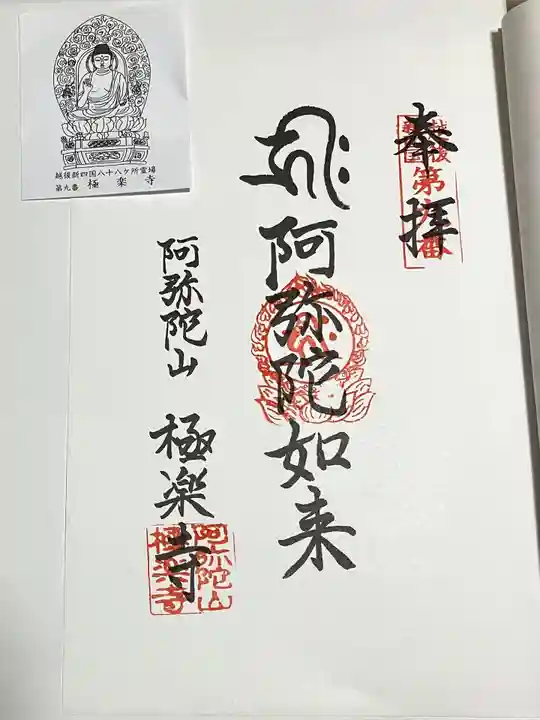 越後新四国八十八ケ所霊場
第九番 極楽寺
奉拝
第九番
阿弥陀如来
阿弥陀山 極楽寺
阿弥陀山
極楽寺